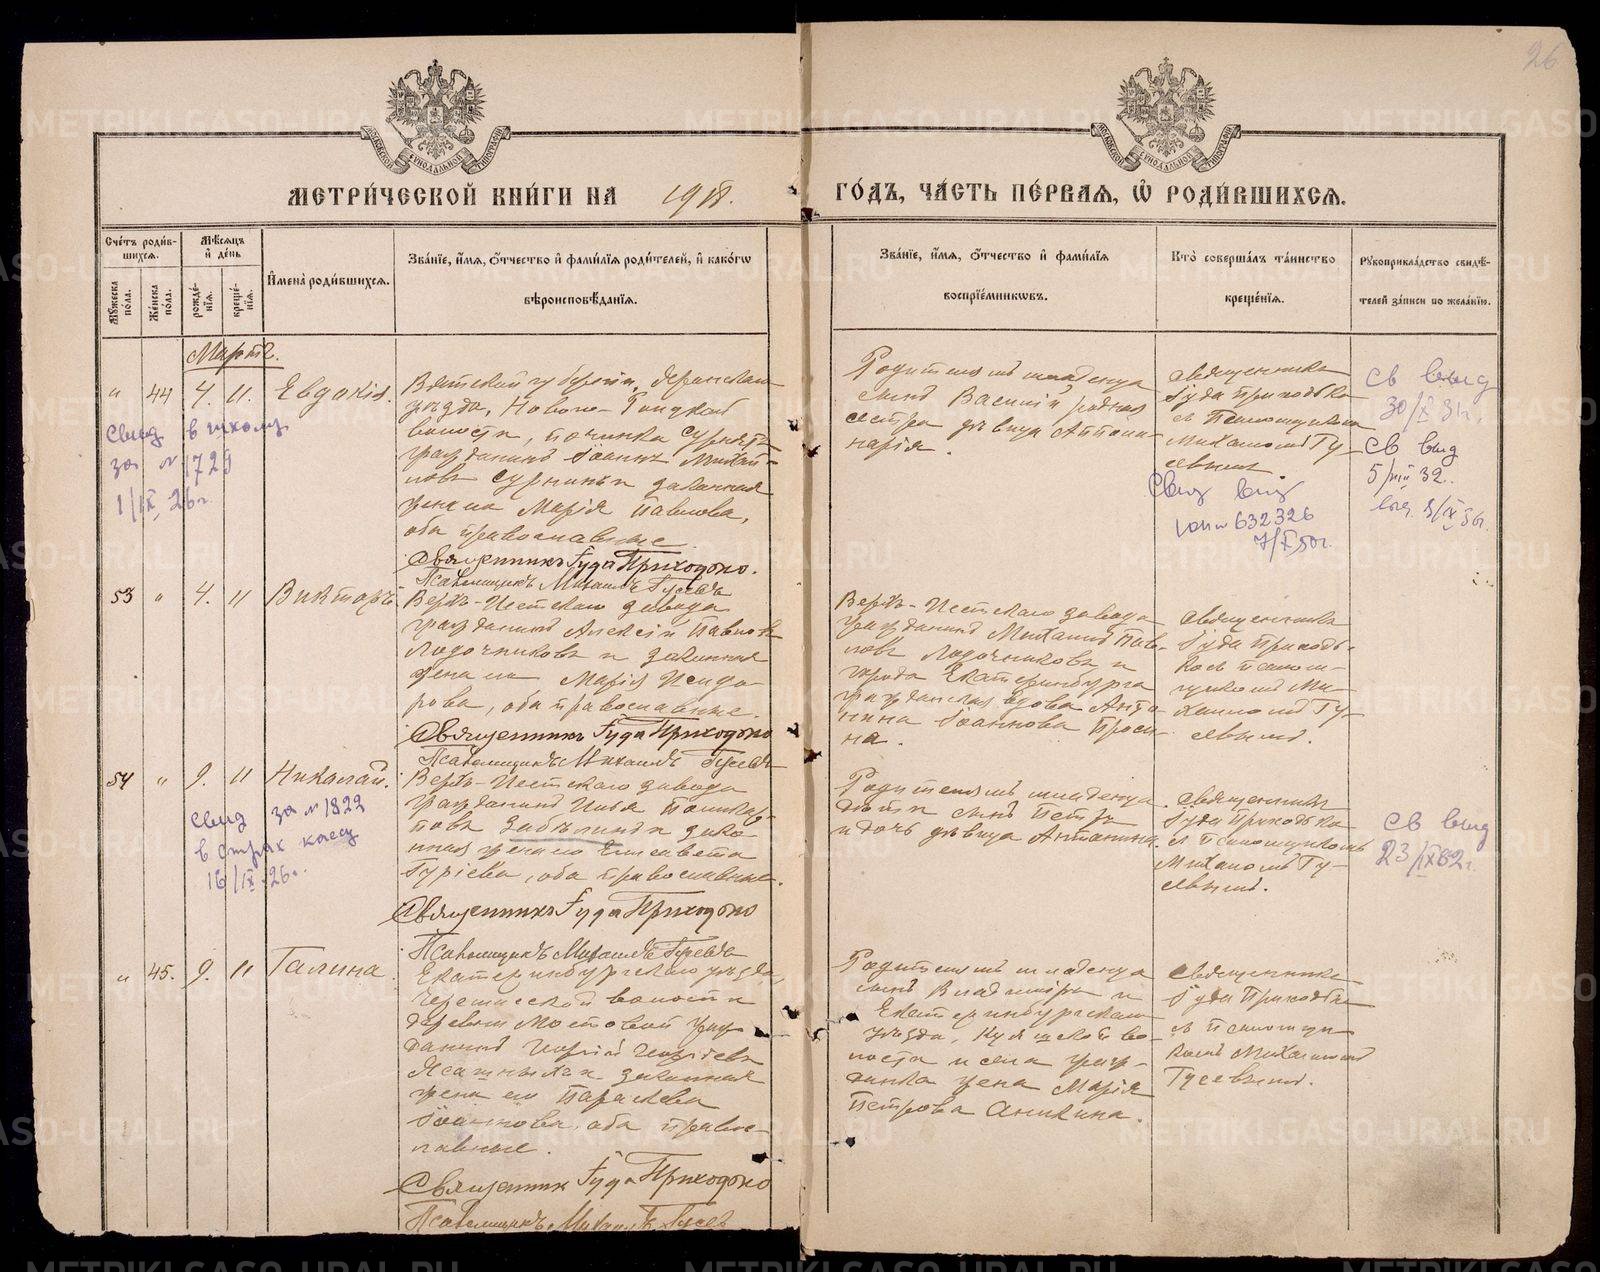 26
МОСКОВСКОЙ СУНОДАЛЬНОЙ ТИПОГРАФІИ
МОСКОВСКОЙ СУНОДАЛЬНОЙ ТИПОГРАФІИ
МЕТРИ́ЧЕСКОЙ КНИ́ГИ НА 1918. ГО́ДЪ, ЧА́СТЬ ПЕ́РВАѦ, Ѽ РОДИ́ВШИХСѦ.
Сче́тъ роди́в-
шихсѧ.
Мꙋ́жеска по́ла.
Же́нска по́ла.
Мѣ́сѧцъ и҆ де́нь
рожде́-
нїѧ.
креще́-
нїѧ.
И҆мена̀ роди́вшихсѧ.
Зва́нїе, и҆́мѧ, ѻ҆́тчество и҆ фами́лїѧ роди́телей, и҆ како́гѡ
вѣроисповѣ́данїѧ.
Зва́нїе, и҆́мѧ, ѻ҆́тчество и҆ фами́лїѧ
воспрїе́мникѡвъ.
Кто̀ соверша́лъ та́инство
креще́нїѧ.
Рꙋкоприкла́дство свидѣ́-
телей за́писи по жела́нїю.
Мартъ.
" 44 4. 11. Евдокія.
Вятской губерніи,
уѣзда, Ново-
волости, починка
гражданинъ Іоаннъ Михай-
ловъ и законная
жена его Марія Павлова,
оба православные
Священникъ Іуда Приходько.
Псаломщикъ Михаилъ Гусевъ
Родителей младенца
сынъ Василій родная
сестра дѣвица Аполи-
нарія.
Священникъ
Іуда Приходько
съ Псаломщикомъ
Михаиломъ Гу-
севымъ.
Свид в школу
за № 1729
1/IX 26 г.
св выд
30/X 31г.
св выд
5/ 32.
632326
7/X 50г.
53 " 4. 11 Викторъ.
Верхъ-Исетскаго завода
гражданинъ Алексій Павловъ
Лодочниковъ и законная
жена его Марія Исидо-
рова, оба православные.
Священникъ Іуда Приходько
Псаломщикъ Михаилъ Гусевъ
Верхъ-Исетскаго завода
гражданинъ Михаилъ Пав-
ловъ Лодочниковъ и
города Екатеринбурга
гражданская вдова Анто-
нина Іоаннова Проси-
на.
Священникъ
Іуда Приходь-
ко съ псалом-
щикомъ Ми-
хаиломъ Гу-
севымъ.
54 " 9. 11 Николай.
Верхъ-Исетскаго завода
гражданинъ Илья Поликар-
повъ Забѣлинъ и зако-
нная жена его Елисавета
Гурiева, оба православные.
Священникъ Іуда Приходько
Псаломщикъ Михаилъ Гусевъ
Родителей младенца
дѣти сынъ Петръ
и дочь дѣвица Антонина.
Священникъ
Іуда Приходько
съ псаломщикомъ
Михаиломъ Гу-
севымъ.
Свид за № 1822
в страх кассу
16/IX-26г.
св выд
23/IX 32г.
" 45. 9. 11 Галина.
Екатеринбургскаго уѣзда,
волости
деревни Мостовой граж-
данинъ Георгій Георгіевъ
Ясашныхъ и законная
жена его Параскева
Іоаннова, оба право-
славные.
Священникъ Іуда Приходько
Псаломщикъ Михаилъ Гусевъ
Родителей младенца
сынъ Владиміръ и
Екатеринбургскаго
уѣзда, во-
лости и села граж-
данка жена Марія
Петрова Аникина.
Священникъ
Іуда Приходько
съ псаломщи-
комъ Михаиломъ
Гусевымъ.
METRIKI.GASO-URAL.RU